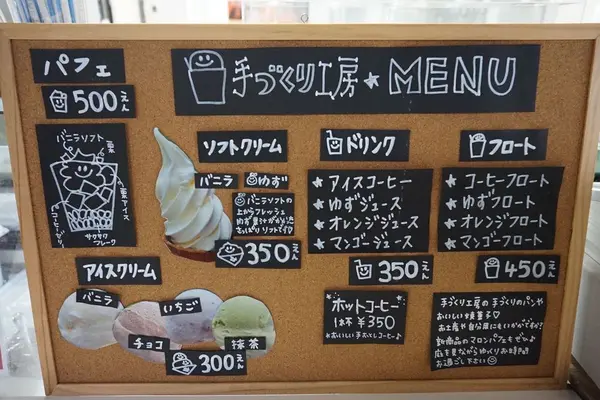 手づくり工房★MENU
パフェ
500えん
バニラソフト
栗
栗アイス
コーヒーゼリー
サクサク
フレーク
ソフトクリーム
バニラ
ゆず
バニラソフトの
上からフレッシュ
ゆず果汁がかかった
さっぱりソフトです
350えん
アイスクリーム
バニラ
いちご
チョコ
抹茶
300えん
ドリンク
★アイスコーヒー
★ゆずジュース
★オレンジジュース
★マンゴージュース
350えん
ホットコーヒー
1杯 ¥350
フロート
★コーヒーフロート
★ゆずフロート
★オレンジフロート
★マンゴーフロート
450えん
手づくり工房の手づくりのパンや
おいしい焼菓子♡
お土産や自分用にもいかがですか?
新商品のマロンパフェもぜひ♪
庭を見ながらゆっくりお時間
お過ごし下さい